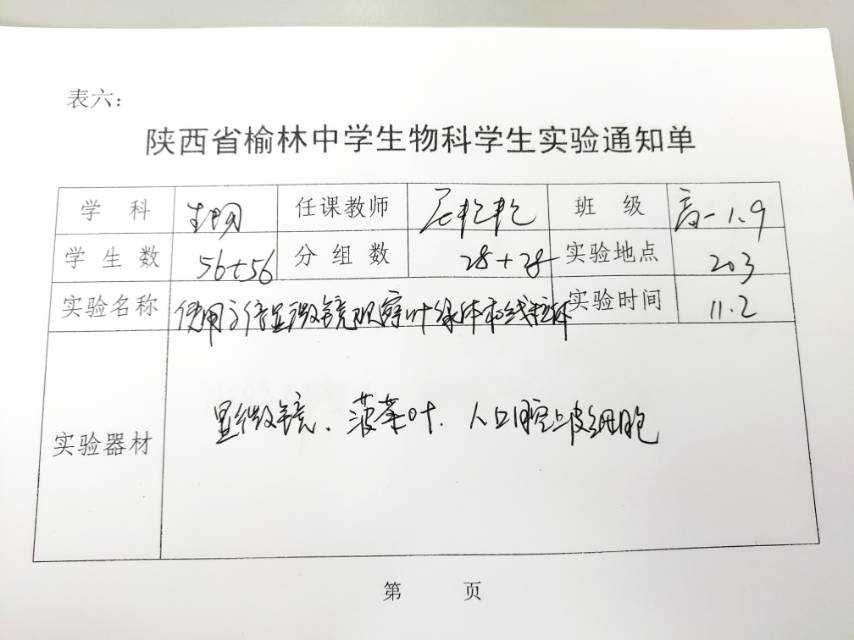 表六：
陕西省榆林中学生物科学生实验通知单
学 科 生物 任课教师 乾乾 班 级 高一1.9
学 生 数 56+56 分 组 数 28+28 实验地点 203
实验名称 使用高倍显微镜观察叶绿体和线粒体 实验时间 11.2
实验器材 显微镜、菠菜叶、人口腔上皮细胞
第 页